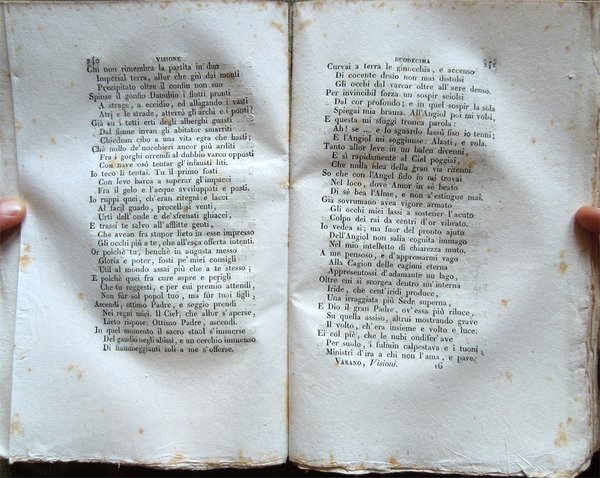 240 VISIONE
Chi non rimembra la partita in duo
Imperial terra, allor che giù dai monti
Precipitato oltre il confin non suo
Spinse il gonfio Danubio i flutti pronti
A strage, a eccidio, ed allagando i vasti
Atrj e le strade, atterrò gli archi e i ponti?
Già su i tetti erti degli alberghi guasti
Dal finne invan gli abitator smarriti
Chiedean cibo a una vita egra che basti;
Chè nullo de' nocchieri ancor più arditi
Fra i gorghi orrendi al dubbio varco opposti
Con nave osò tentar gl'infausti liti.
Io teco li tentai. Tu il primo fosti
Con leve barca a superar gl'impacci
Fra il gelo e l'acque avviluppati e posti.
Io ruppi quei, ch'eran ritegni e lacci
Al facil guado, procelloşi venti,
Urti dell'onde e de' sfrenati ghiacci,
E trassi te salvo all'afflitte genti,
Che avean fra stupor lieto in esse impresso
Gli occhi più a te, che all'esca offerta intenti.
Or poichè tu, benchè in augusta messo
Gloria e poter, fosti pe' miei consigli
Util al mondo assai più che a te stesso;
E poichè quei fra cure aspre e perigli
Che tu reggesti, e per cui premio attendi,
Non fur sol popol tuo, ma fur tuoi figli,
Ascendi, ottimo Padre, e seggio prendi
Nei regni miei. Il Ciel, che allor s'aperse,
Lieto rispose: Ottimo Padre, ascendi.
In quel momento il sacro stuol s'immerse
Del gaudio negli abissi, e un cerchio immenso
Di fiammeggianti soli a me s'offerse.
DUODECIMA 241
Curvai a terra le ginocchia, e acceso
Di cocente desio non mai distolsi
Gli occhi dal varcar oltre all'aere denso.
Per invincibil forza un sospir sciolsi
Dal cor profondo; e in quel sospir la sola
Spiegai mia brama. All'Angiol poi mi volsi,
E questa mi sfuggì tronca parola:
Ah! se .... e lo sguardo lassù fiso io tenni;
E l'Angiol mi soggiunse: Alzati, e vola.
Tanto allor leve in un balen divenni,
E sì rapidamente al Ciel poggiai,
Che nulla idea della gran via ritenni.
So che con l'Angel fido io mi trovai
Nel loco, dove Amor in sè beato
Di sè bea l'Alme, e non s'estingue mai.
Già sovrumano avea vigore armato
Gli occhi miei lassi a sostener l'acuto
Colpo dei rai da centri d'or vibrato.
Io vedea sì; ma fuor del pronto ajuto
Dell'Angiol non salia cognita immago
Nel mio intelletto di chiarezza muto.
A me pensoso, e d'appressarmi vago
Alla Cagion delle cagioni eterna
Appresentossi d'adamante un lago,
Oltre cui si scorgea dentro un'interna
Iride, che cent'iridi produce,
Una irraggiata più Sede superna,
E Dio il gran Padre, ov'essa più riluce,
Su quella assiso, altrui mostrando grave
Il volto, ch'era insieme e volto e luce.
Ei col piè, che le nubi ondifer'ave
Per suolo, i fulmin calpestava e i tuoni,
Ministri d'ira a chi non l'ama, e pave.
VARANO, Visioni. 16